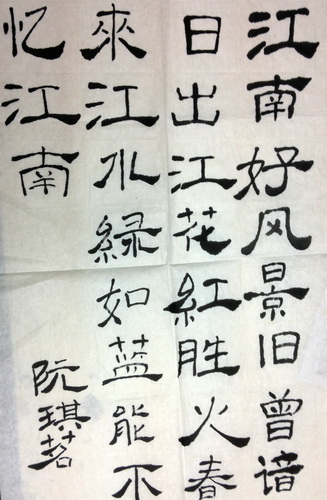 江南好风景旧曾谙
日出江花紅胜火春
來江水緑如蓝能不
忆江南
阮琪茗